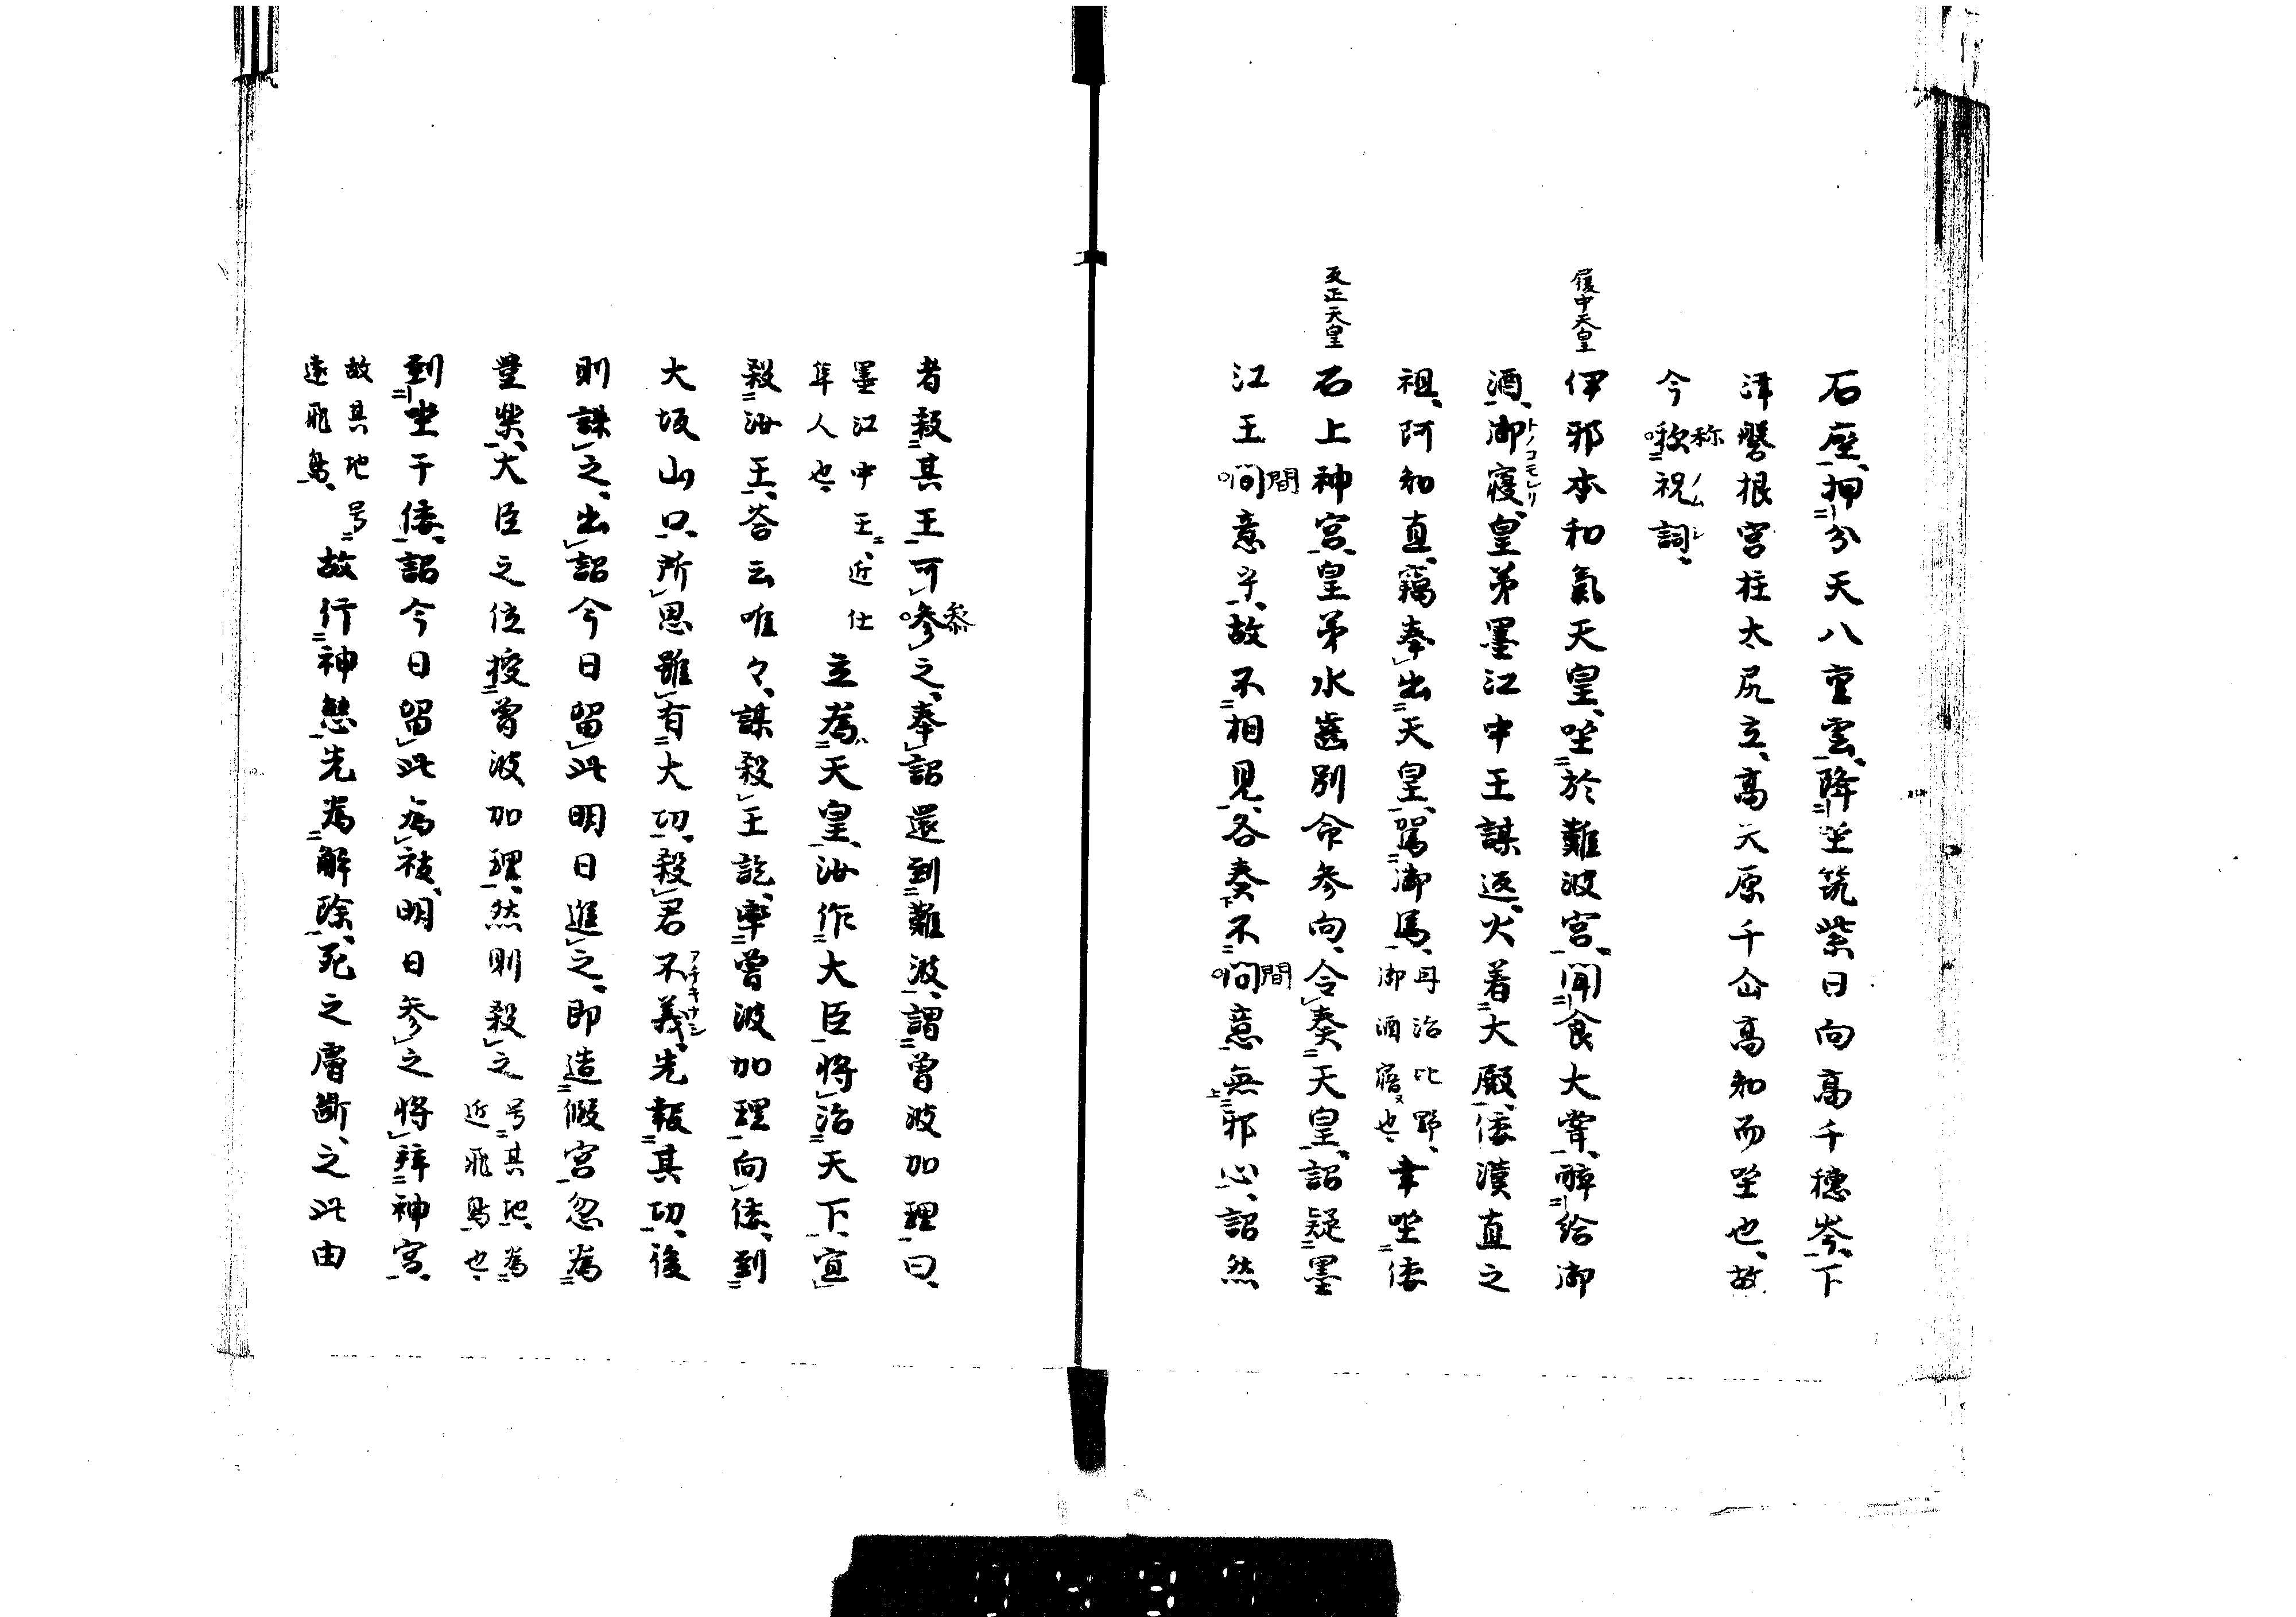 石座押分天八重雲降坐筑紫日向高千穂岑下
津磐根宮柱太尻立高天原千木高知而坐也故
今称祝詞
履中天皇
伊邪本和氣天皇坐於難波宮聞食大嘗酔給御
酒御寝皇弟墨江中王謀返火着大殿倭漢直之
祖阿知直竊奉出天皇駕御馬丹治比野御酒寤也幸坐倭
反正天皇
石上神宮皇弟水歯別命参向令奏天皇詔疑墨
江王間意乎故不相見各奏不間意無邪心詔然
者殺其王可参之奉詔還到難波謂曽波加理曰
墨江中王近仕隼人也立為天皇汝作大臣将治天下宣
殺汝王荅云唯々謀殺王訖率曽波加理向倭到
大坂山口所思雖有大功殺君不義先報其功後
則誅之出詔今日留此明日進之即造假宮忽為
豊樂大臣之位授曽波加理然則殺之号其地為近飛鳥也
到坐于倭詔今日留此為祓明日参之将拜神宮
故其地号遠飛鳥故行神態先為解除死之膚断之此由